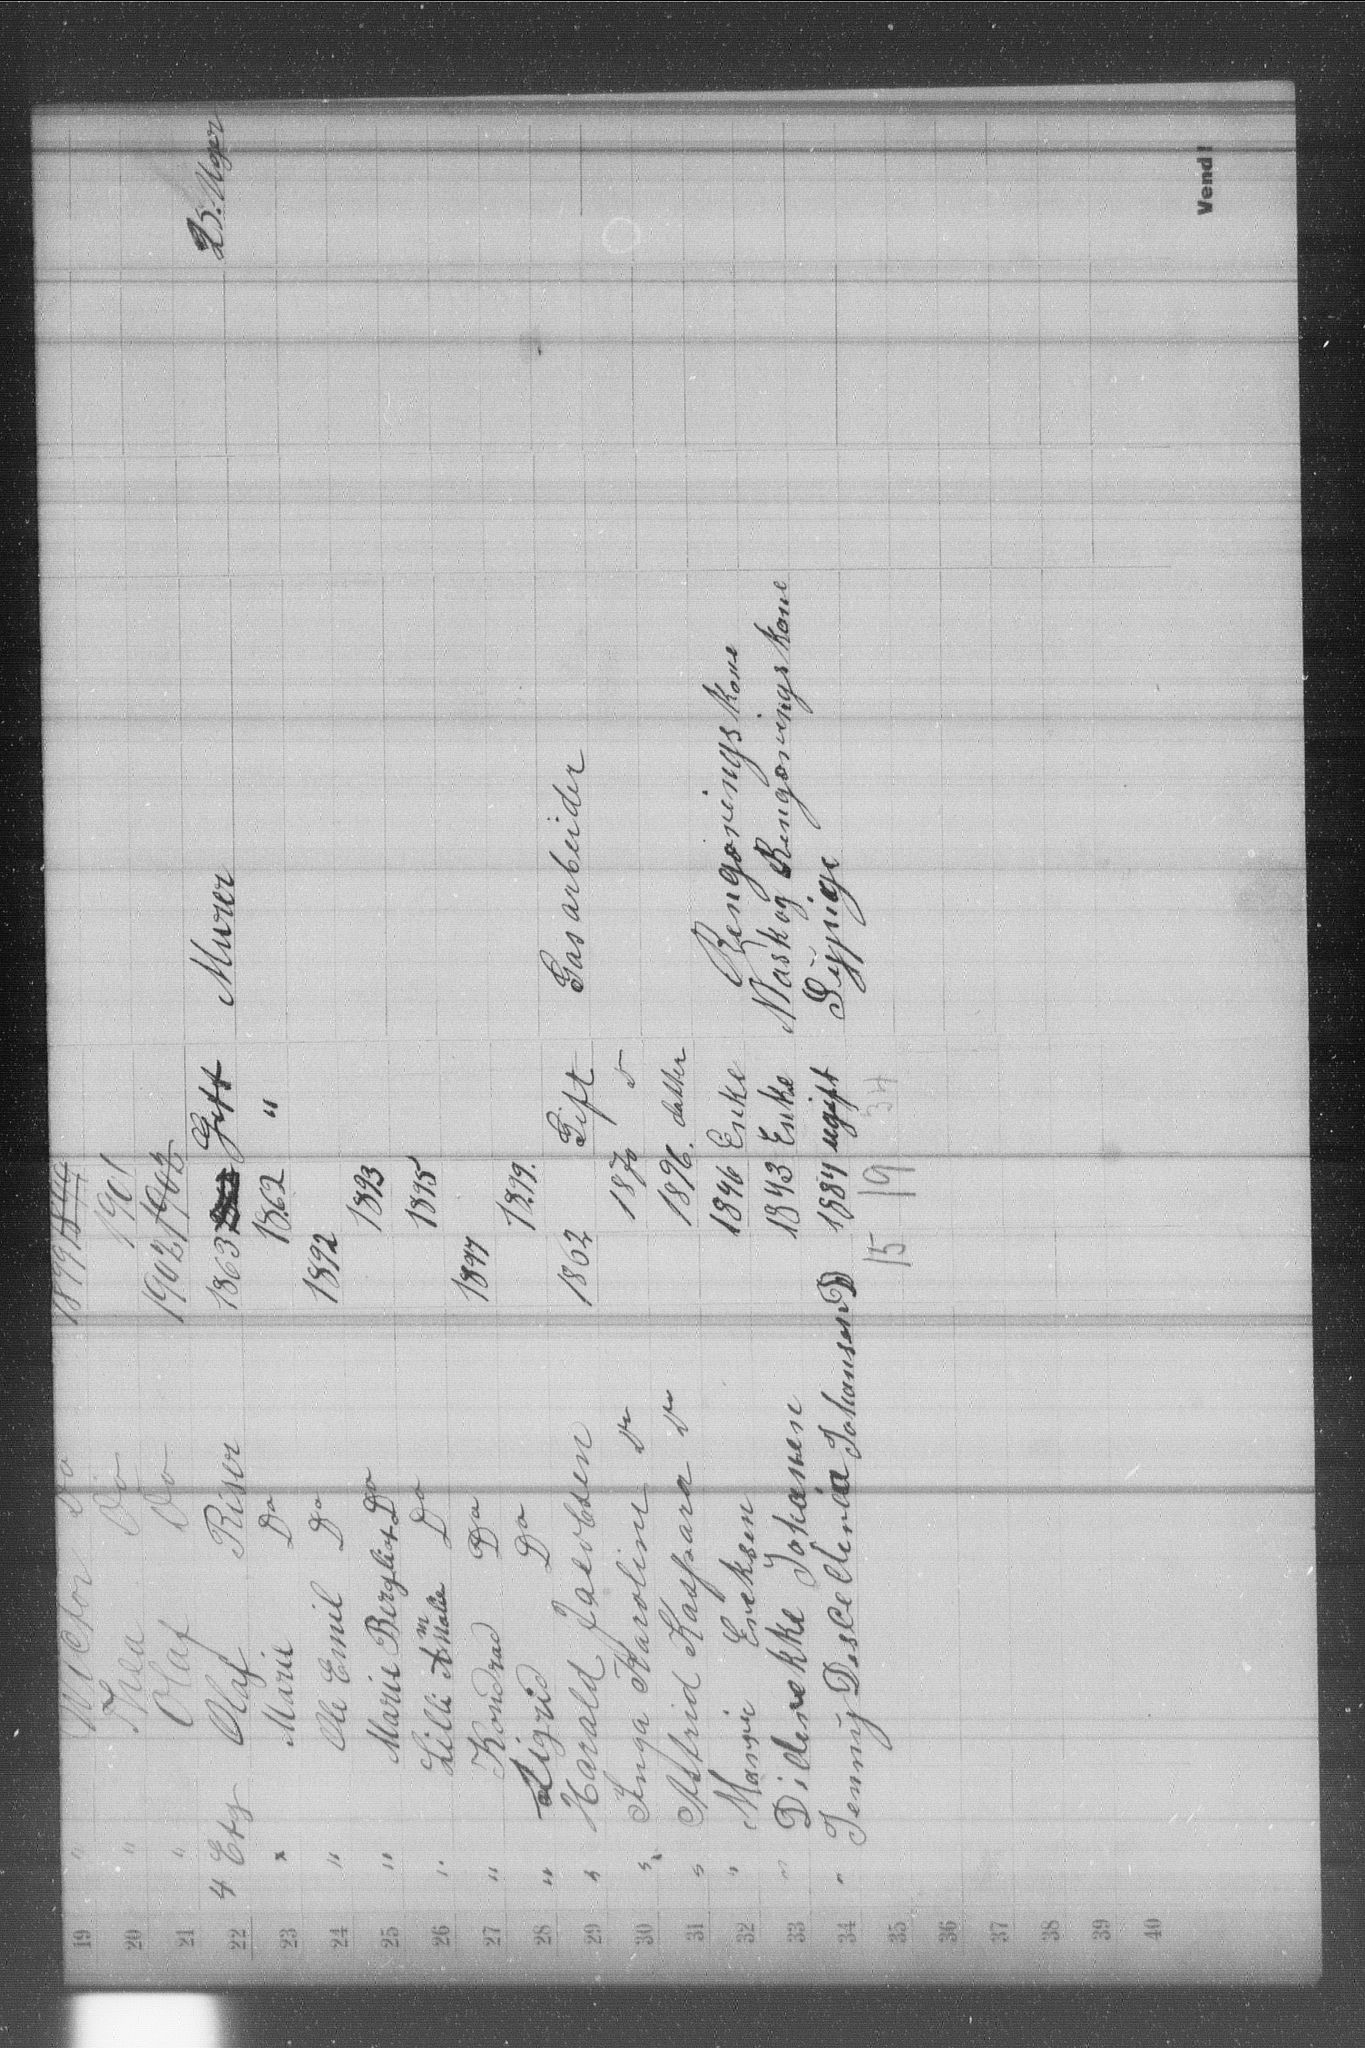 19 " Victor Do 1899 1899
20 " Thea Do 1901
21 " Olaf Do 1902 1902
22 4 Etg Olaf Riser 1863 Gift Murer 25. Uger
23 " Marie Do 1862 "
24 " Ole Emil Do 1892
25 " Marie Bergliot Do 1893
26 " Lilli Amalie Do 1895
27 " Kondrad Do 1897
28 " Sigrid Do 1899.
29 " Harald Jacobsen 1862 Gift Gasarbeider
30 " Inga Karoline Do 1870
31 " Astrid Kaspara Do 1896. datter
32 " Mangie Eriksen 1846 Enke Rengørings Kone
33 " Diderekke Johansen 1843 Enke Vask og Rengørings Kone
34 " Jenny Johansen 1884 ugift Sypige
35 15 19 34
36
37
38
39
40
Vend!